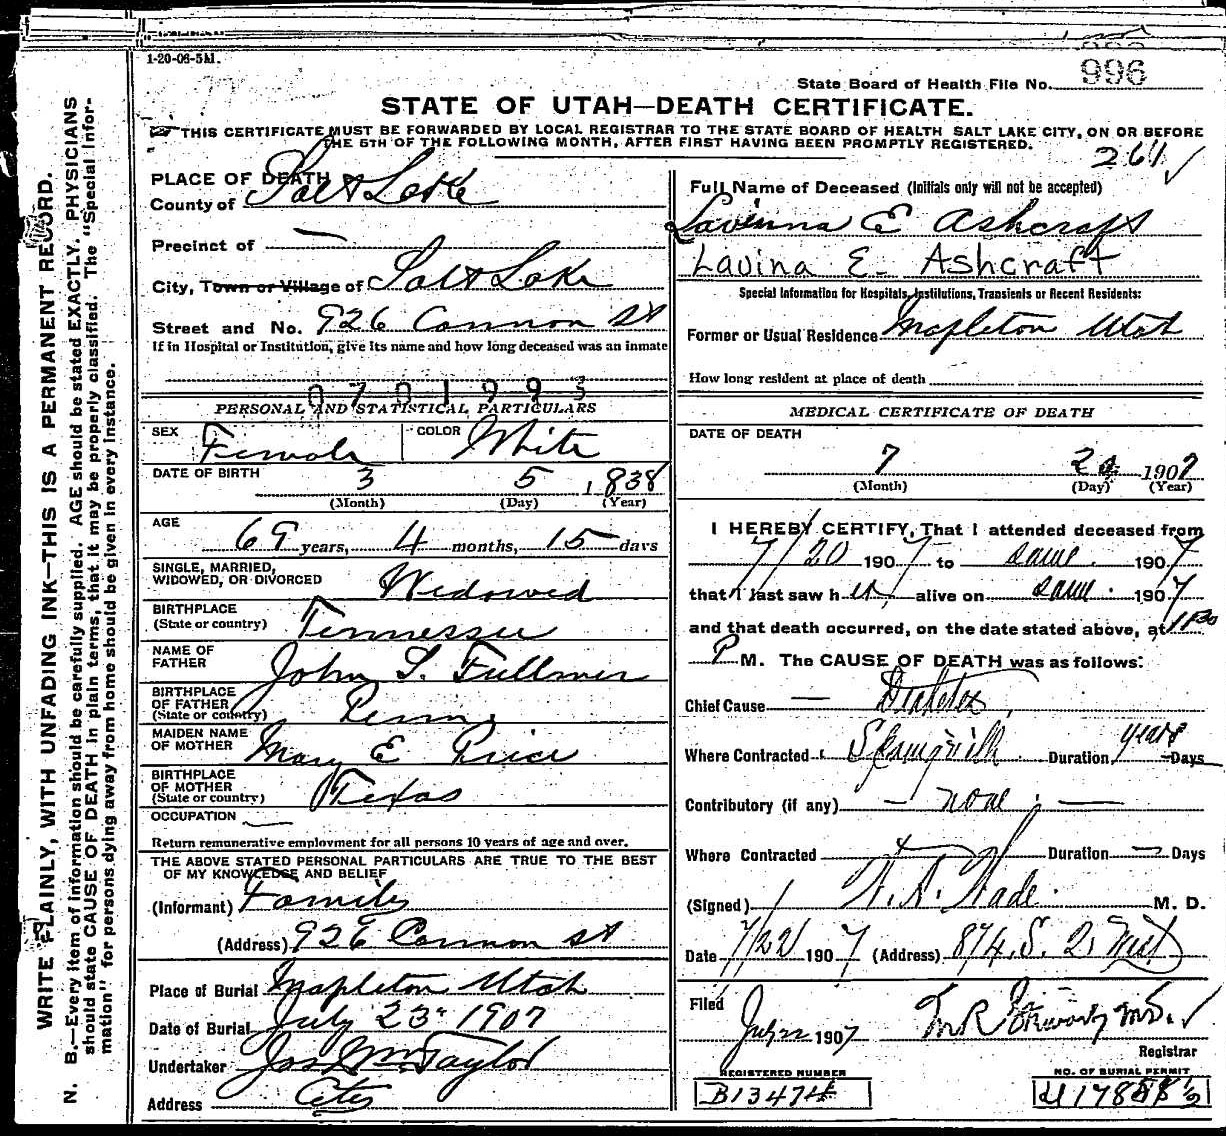 1-20-06-5M.
State Board of Health File No. 996
STATE OF UTAH—DEATH CERTIFICATE.
THIS CERTIFICATE MUST BE FORWARDED BY LOCAL REGISTRAR TO THE STATE BOARD OF HEALTH SALT LAKE CITY, ON OR BEFORE
THE 5TH OF THE FOLLOWING MONTH, AFTER FIRST HAVING BEEN PROMPTLY REGISTERED.
261 ✓
WRITE PLAINLY, WITH UNFADING INK—THIS IS A PERMANENT RECORD.
N. B.—Every item of information should be carefully supplied. AGE should be stated EXACTLY. PHYSICIANS
should state CAUSE OF DEATH in plain terms, that it may be properly classified. The "Special Infor-
mation" for persons dying away from home should be given in every instance.
PLACE OF DEATH
County of Salt Lake
Precinct of —
City, Town or Village of Salt Lake
Street and No. 926 Cannon St
If in Hospital or Institution, give its name and how long deceased was an inmate
0701993
PERSONAL AND STATISTICAL PARTICULARS
SEX Female COLOR White
DATE OF BIRTH 3 5 1838
(Month) (Day) (Year)
AGE
69 years, 4 months, 15 days
SINGLE, MARRIED,
WIDOWED, OR DIVORCED Widowed
BIRTHPLACE
(State or country) Tennessee
NAME OF
FATHER John S. Fullmer
BIRTHPLACE
OF FATHER
(State or country) Penn,
MAIDEN NAME
OF MOTHER Mary E Price
BIRTHPLACE
OF MOTHER
(State or country) Texas
OCCUPATION —
Return remunerative employment for all persons 10 years of age and over.
THE ABOVE STATED PERSONAL PARTICULARS ARE TRUE TO THE BEST
OF MY KNOWLEDGE AND BELIEF
(Informant) Family
(Address) 926 Cannon St
Place of Burial Mapleton Utah
Date of Burial July 23 1907
Undertaker Jos Wm Taylor
Address City
Full Name of Deceased (Initials only will not be accepted)
Lavinna E Ashcraft
Lavina E. Ashcraft
Special Information for Hospitals, Institutions, Transients or Recent Residents:
Former or Usual Residence Mapleton Utah
How long resident at place of death
MEDICAL CERTIFICATE OF DEATH
DATE OF DEATH
7 20 1907
(Month) (Day) (Year)
I HEREBY CERTIFY, That I attended deceased from
7/20 1907 to same 1907
that I last saw her alive on same 1907
and that death occurred, on the date stated above, at 11:30
P M. The CAUSE OF DEATH was as follows:
Chief Cause — Diabetes,
Where Contracted Duration years Days
Contributory (if any) — none —
Where Contracted Duration — Days
(Signed) Wade M. D.
Date 7/22 1907 (Address) 874. S. 2. West
Filed
July 22 1907 M.D. ✓
Registrar
REGISTERED NUMBER
B13474
NO. OF BURIAL PERMIT